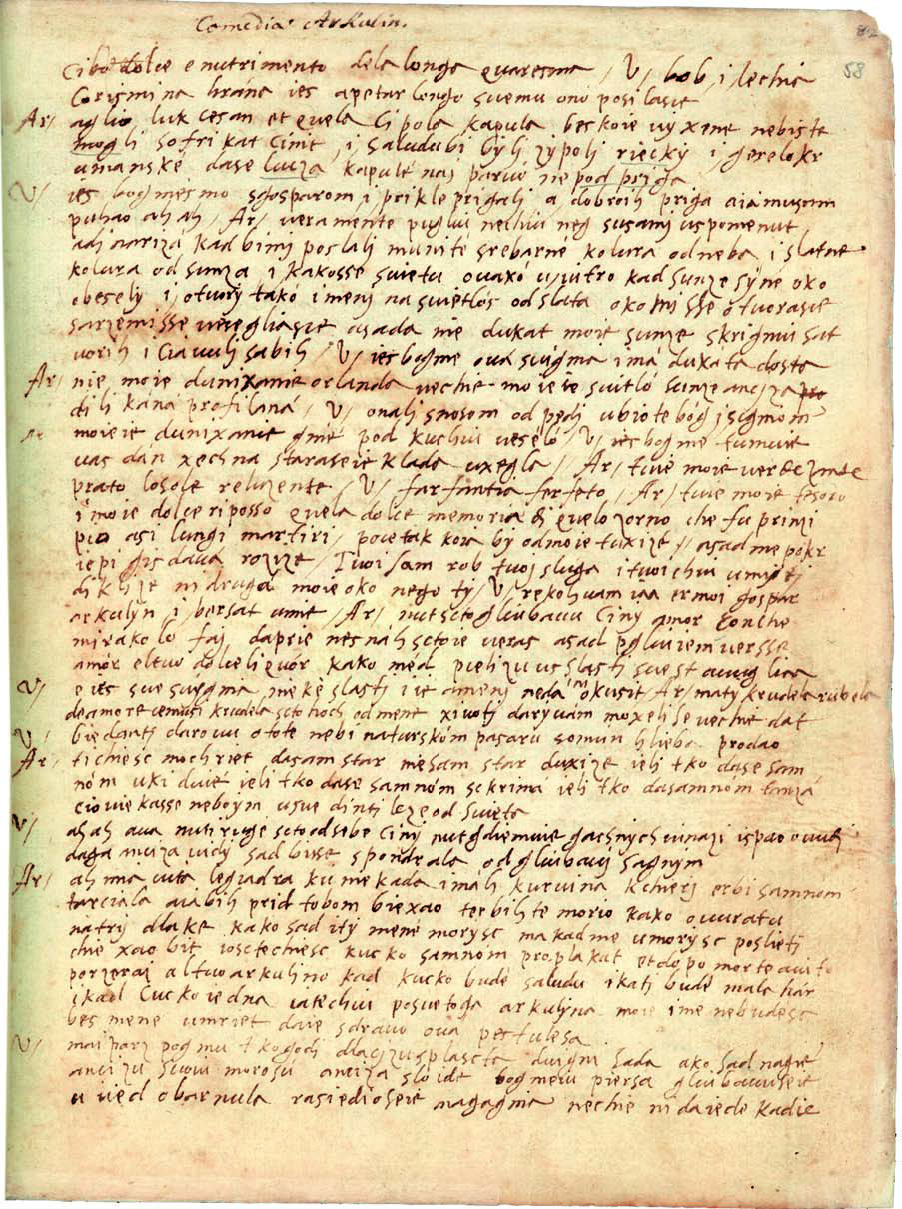 Comedia Arkulin.
82
58
Cibo dolce e nutrimento dela longa quaresma / V / bob, i lechie
Corismina hrána ies apetur longo suemu ono posilasie
Ar/ aglio luk cesan et quela Cipola kapula bes koie uyxene nebiste
mogli sofrikat Cinit, i, saludubi byli zypoli riecky i gerelokr
umanské dase luiza kapulé nas paruo ne pod priga
V/ ies bogmesmo sgosparom, i prikle prigali a dobroih priga aiamusom
puhao ah ah / Ar / ueramente pugliu nechiu neg susanj uspomenut
adinariza kad bimj poslali munite srebarné kolura odneba i slatne
kolura od sunza i kakosse swietu ouakó uiutro kad sunze syné oko
obesely i, otuory takó imenj na suietlós od slata oko misse otuorasie
sarzemisse uesegliasie asada nie dukat moie sunze skrignu sat
uorih i Ciauuli sabih / V / ies bogme oua suigma imá dukata dosta
Ar/ nie moie dunixanie orlanda uechie moieie suitló sunze anciza
di li kána profilaná / V / onali snosom od pedi ubiote bóg i sugmom
Ar moieie dunixanie gnié pod kuchiu uesélo / V / ies bogme tumuie
uas dán xech na staraseie klada uxegla / Ar / tuie moie uerde
prato losole reluzente / V / farfantia ferfeto / Ar / tuie moie tesoro
i moie dolce riposso quela dolce memoria di quelo zorno che fu prinzi
pio asi lungi martiri / pocetak kora by odmoie tuxize // asad me pokr
iepi gis daua rozize / Tuoi sam rob tuoj sluga ituoichiu umrieti
diklize ni drugá moie oko nego ty / V / rekoh uam iaa er moi gospar
arkulyn i, bersat umie / Ar / nutsctogliubauu Ciny amor Conche
mirakolo faj daprie nesnah sctoie ueras asad pogluiem uersse
amór eltuo dólceliquór kako méd pieliziuu slasti suest
V/ e iés sue suigma nekė slasti i ie ameni nedá okusit / Ar / maty krudela rubela
deamore uemusi krudela sctohoch od mene xiuoti daryuám moxelise uechie dat
V/ biedanti darouu o tote nebi naturskóm pasaru somun hlieba prodao
Ar/ tichiesc mochriet dasam star niesam star duxize ieli tko dase sam
nóm uki duié ieli tko dase samnóm sckrima ieli tko dasamnom tanzá
ciouiekasse neboym usue dinti leze od swieta
V/ ah ah aua nuti ruge sctoodsebe Ciny nutgdiemuie gachnych uinazi ispao ouuj
daga anciza uidy sad bisse spondrala odgliubaui sagnym
Ar/ ah mia uita legiadra ku nie kada imáh kuruina kchieri erbi samnom
tarciala aiabih prid tobom biexao terbihte morio kako ouuratu
natrij dlake kako sad ity mene morysc ma kad me umorysc poslieti
chie xao bit iosctechiesc kucko samnom proplakat et dopo morte auito
porzeraj altuo arkulino kad kucko bude saludu i kati bude mala hár
ikad Cucko iedna uatechiu posuetoga arkulyna moie ime nebudesc
bes mene umriet daie sdrauu oua petulesa
V/ maizarz pogmu tkogodi dlacizusplascta duignu sada ako sad nagne
ancizu suoiu morosu anciza slo ide bogmeiu piersa gliubauuseie
u uied obarnula rasiedioseie nagagnia nechie nidaiede kadie